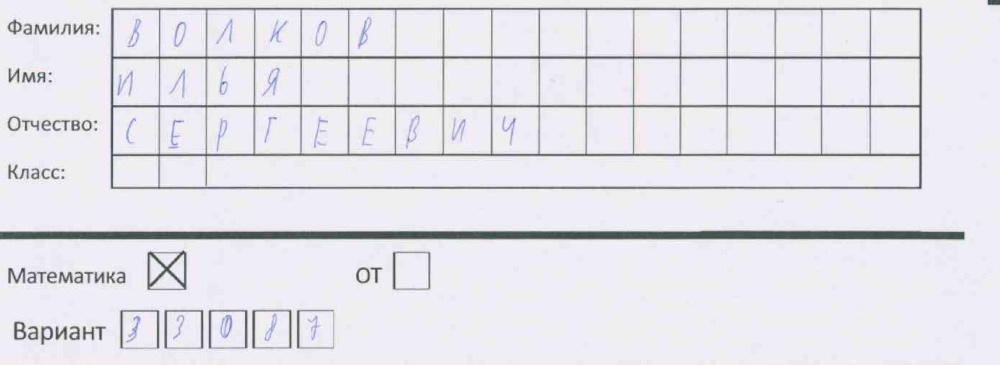 Фамилия: ВОЛКОВ
Имя: ИЛЬЯ
Отчество: СЕРГЕЕВИЧ
Класс:
Математика ОТ
Вариант 33087